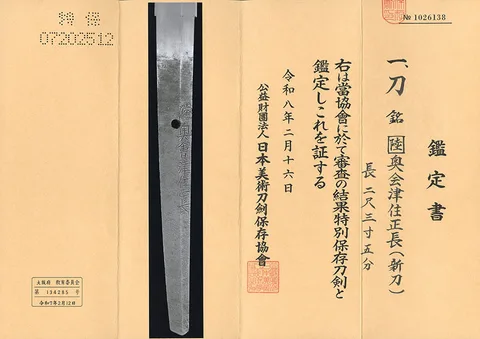 № 1026138
鑑定書
一、刀 銘 陸奥会津住正長(新刀)
長 二尺三寸五分
右は當協會に於て審査の結果特別保存刀剣と
鑑定しこれを証する
令和八年二月十六日
公益財團法人 日本美術刀剣保存協會
特保
07202512
大阪府 教育委員会
第 134295 号
令和7年2月12日